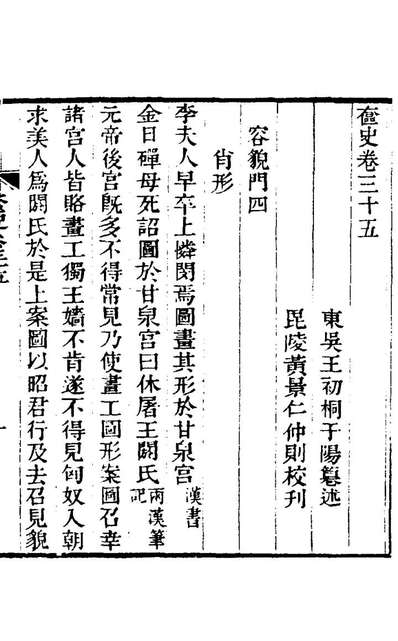 奩史卷三十五
東吳王初桐于陽纂述
毘陵黃景仁仲則校刊
容貌門四
肖形
李夫人早卒上憐閔焉圖畫其形於甘泉宮漢書
金日磾母死詔圖於甘泉宮曰休屠王閼氏兩漢筆記
元帝後宮旣多不得常見乃使畫工圖形案圖召幸
諸宮人皆賂畫工獨王嬙不肯遂不得見匈奴入朝
求美人爲閼氏於是上案圖以昭君行及去召見貌